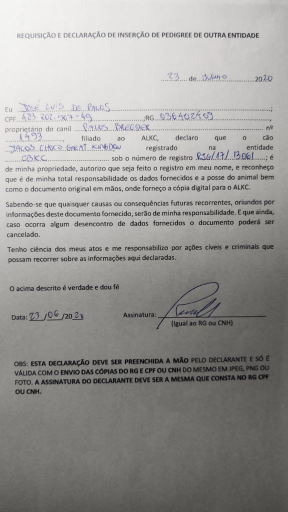 REQUISIÇÃO E DECLARAÇÃO DE INSERÇÃO DE PEDIGREE DE OUTRA ENTIDADE
23 de Junho 2020
Eu José Luis de Paulos
CPF RG 036402409
proprietário do canil nº
1493 filiado ao ALKC, declaro que o cão
registrado na entidade
CBKC sob o número de registro RJG/17/13061; é
de minha propriedade, autorizo que seja feito o registro em meu nome, e reconheço
que é de minha total responsabilidade os dados fornecidos e a posse do animal bem
como o documento original em mãos, onde forneço a cópia digital para o ALKC.
Sabendo-se que quaisquer causas ou consequências futuras recorrentes, oriundos por
informações deste documento fornecido, serão de minha responsabilidade. E que ainda,
caso ocorra algum desencontro de dados fornecidos o documento poderá ser
cancelado.
Tenho ciência dos meus atos e me responsabilizo por ações cíveis e criminais que
possam recorrer sobre as informações aqui declaradas.
O acima descrito é verdade e dou fé
Data: 23/06/2023 Assinatura:
(Igual ao RG ou CNH)
OBS: ESTA DECLARAÇÃO DEVE SER PREENCHIDA A MÃO PELO DECLARANTE E SÓ É
VÁLIDA COM O ENVIO DAS CÓPIAS DO RG E CPF OU CNH DO MESMO EM JPEG, PNG OU
FOTO. A ASSINATURA DO DECLARANTE DEVE SER A MESMA QUE CONSTA NO RG CPF
OU CNH.